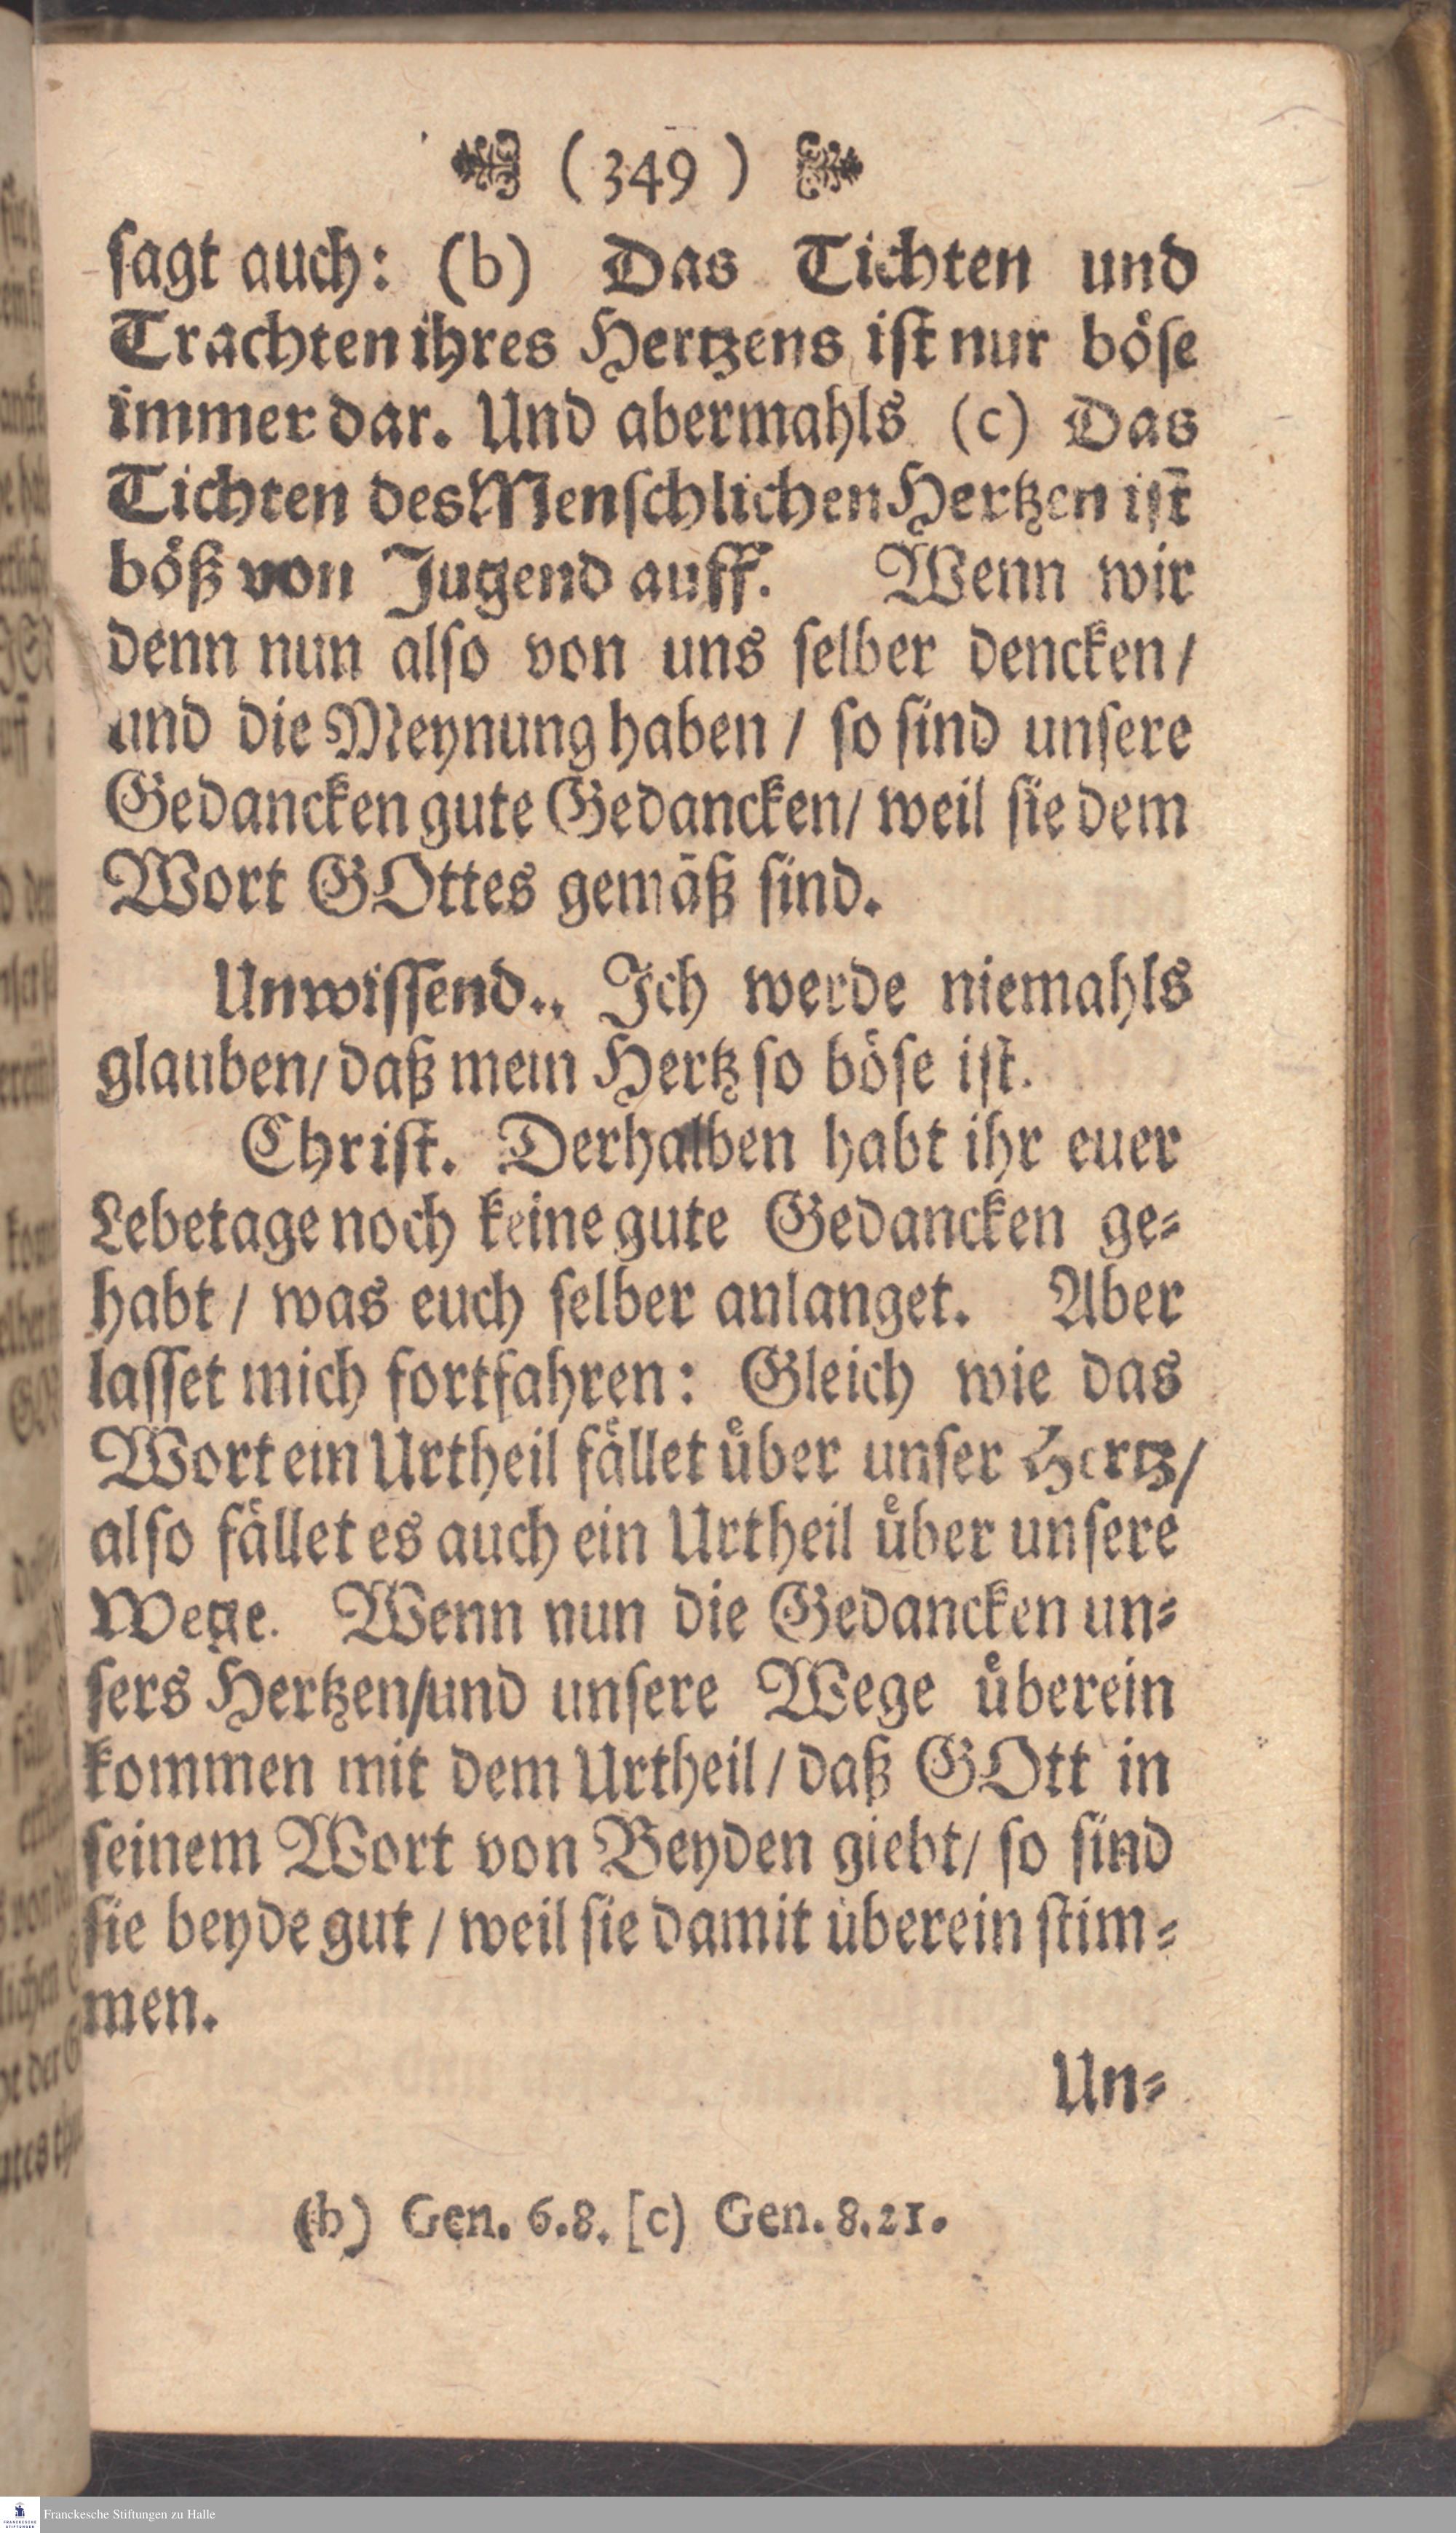 ( 349 )
ſagt auch: (b) Das Tichten und
Trachten ihres Hertzens iſt nur böſe
immerdar. Und abermahls (c) Das
Tichten des Menſchlichen Hertzen iſt
böß von Jugend auff. Wenn wir
denn nun alſo von uns ſelber dencken/
und die Meynung haben / ſo ſind unſere
Gedancken gute Gedancken/ weil ſie dem
Wort GOttes gemäß ſind.
Unwiſſend.. Ich werde niemahls
glauben/ daß mein Hertz ſo böſe iſt.
Chriſt. Derhalben habt ihr euer
Lebetage noch keine gute Gedancken ge⸗
habt / was euch ſelber anlanget. Aber
laſſet mich fortfahren: Gleich wie das
Wort ein Urtheil fället über unſer Hertz/
alſo fället es auch ein Urtheil über unſere
Wege. Wenn nun die Gedancken un⸗
ſers Hertzen/und unſere Wege überein
kommen mit dem Urtheil / daß GOtt in
ſeinem Wort von Beyden giebt/ ſo ſind
ſie beyde gut / weil ſie damit überein ſtim⸗
men.
Un⸗
(b) Gen. 6.8. [c) Gen. 8.21.
Franckesche Stiftungen zu Halle